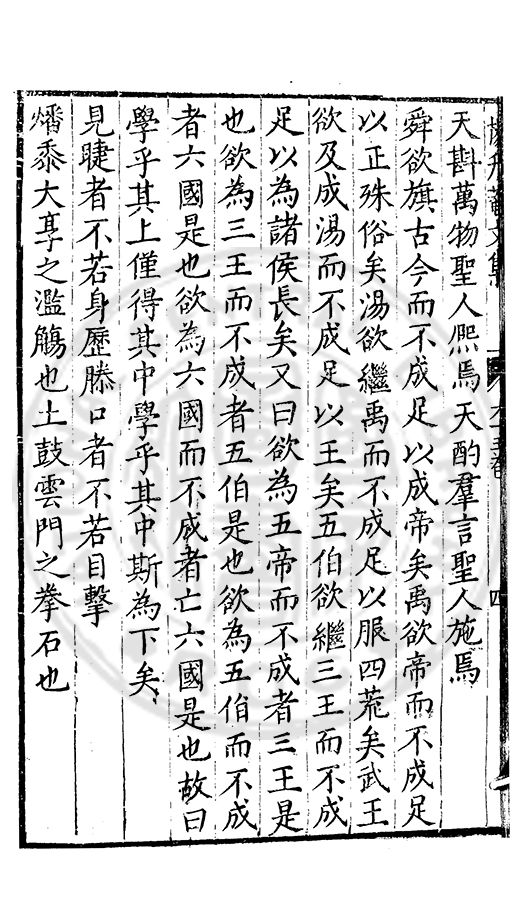 楊升菴文集 卷 四
天斟萬物聖人熈焉天酌羣言聖人施焉
舜欲旗古今而不成足以成帝矣禹欲帝而不成足
以正殊俗矣湯欲繼禹而不成足以服四荒矣武王
欲及成湯而不成足以王矣五伯欲繼三王而不成
足以為諸侯長矣又曰欲為五帝而不成者三王是
也欲為三王而不成者五伯是也欲為五伯而不成
者六國是也欲為六國而不成者亡六國是也故曰
學乎其上僅得其中學乎其中斯為下矣
見睫者不若身歷滕口者不若目擊
燔黍大享之濫觴也土鼓雲門之拳石也